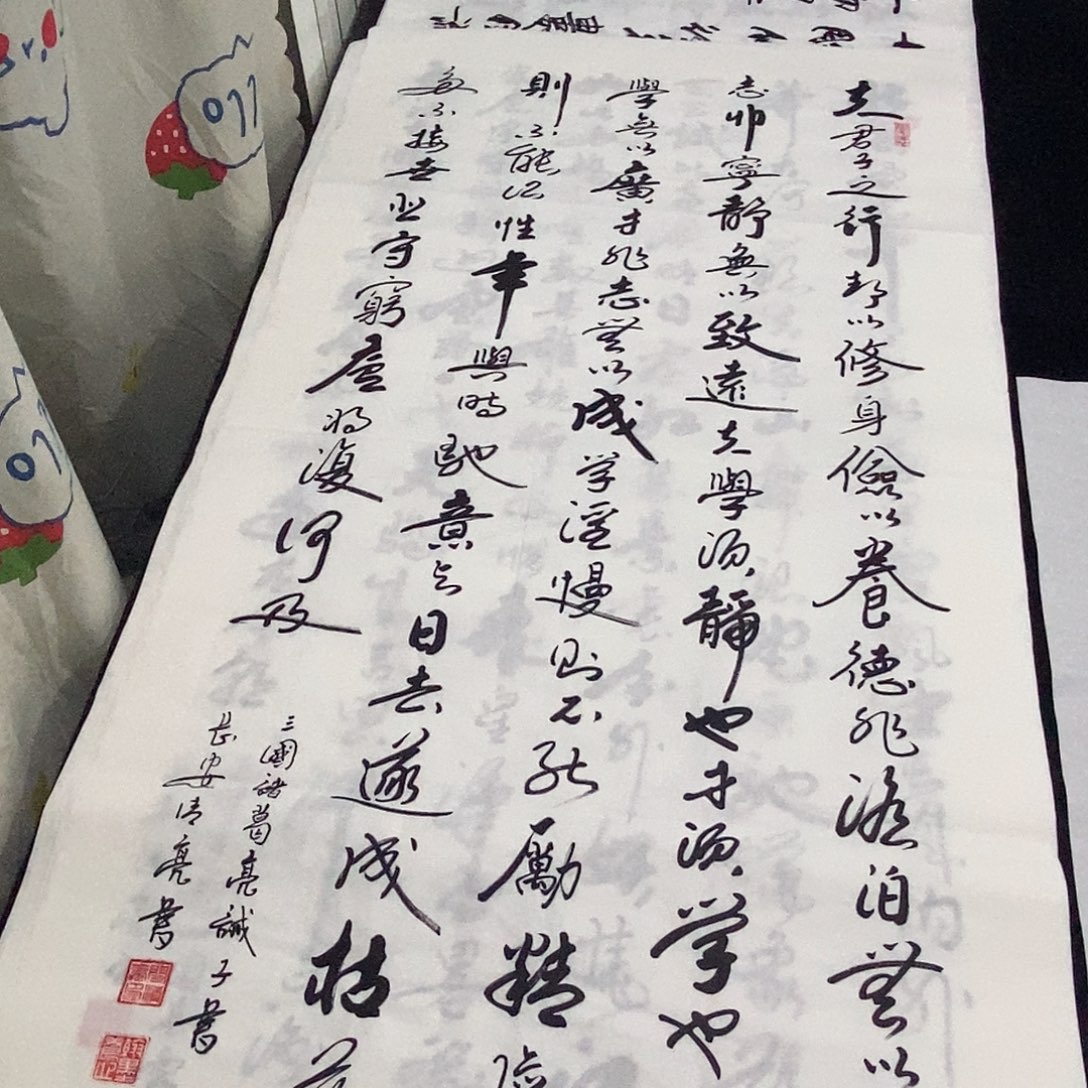 夫君子之行静以修身儉以養德非澹泊無以
志非寧靜無以致遠夫學須靜也才須学也
學無以廣才非志無以成学淫慢則不能勵精險
則不能治性年與時馳意与日去遂成枯落
多不接世悲守窮廬将復何及
三國諸葛亮誡子書
長安清亮書